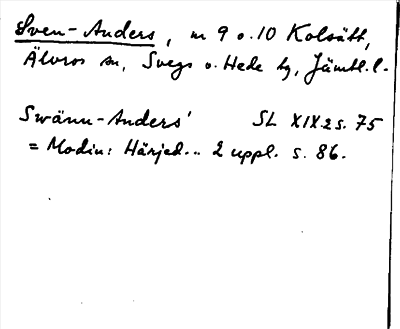 Sven-Anders, m 9 o. 10 Kolsätt,
Älvros sn, Svegs o. Hede tg, Jämtl. l.
Swänn-Anders' SL XIX.2 s. 75
= Modin: Härjed... 2 uppl. s. 86.